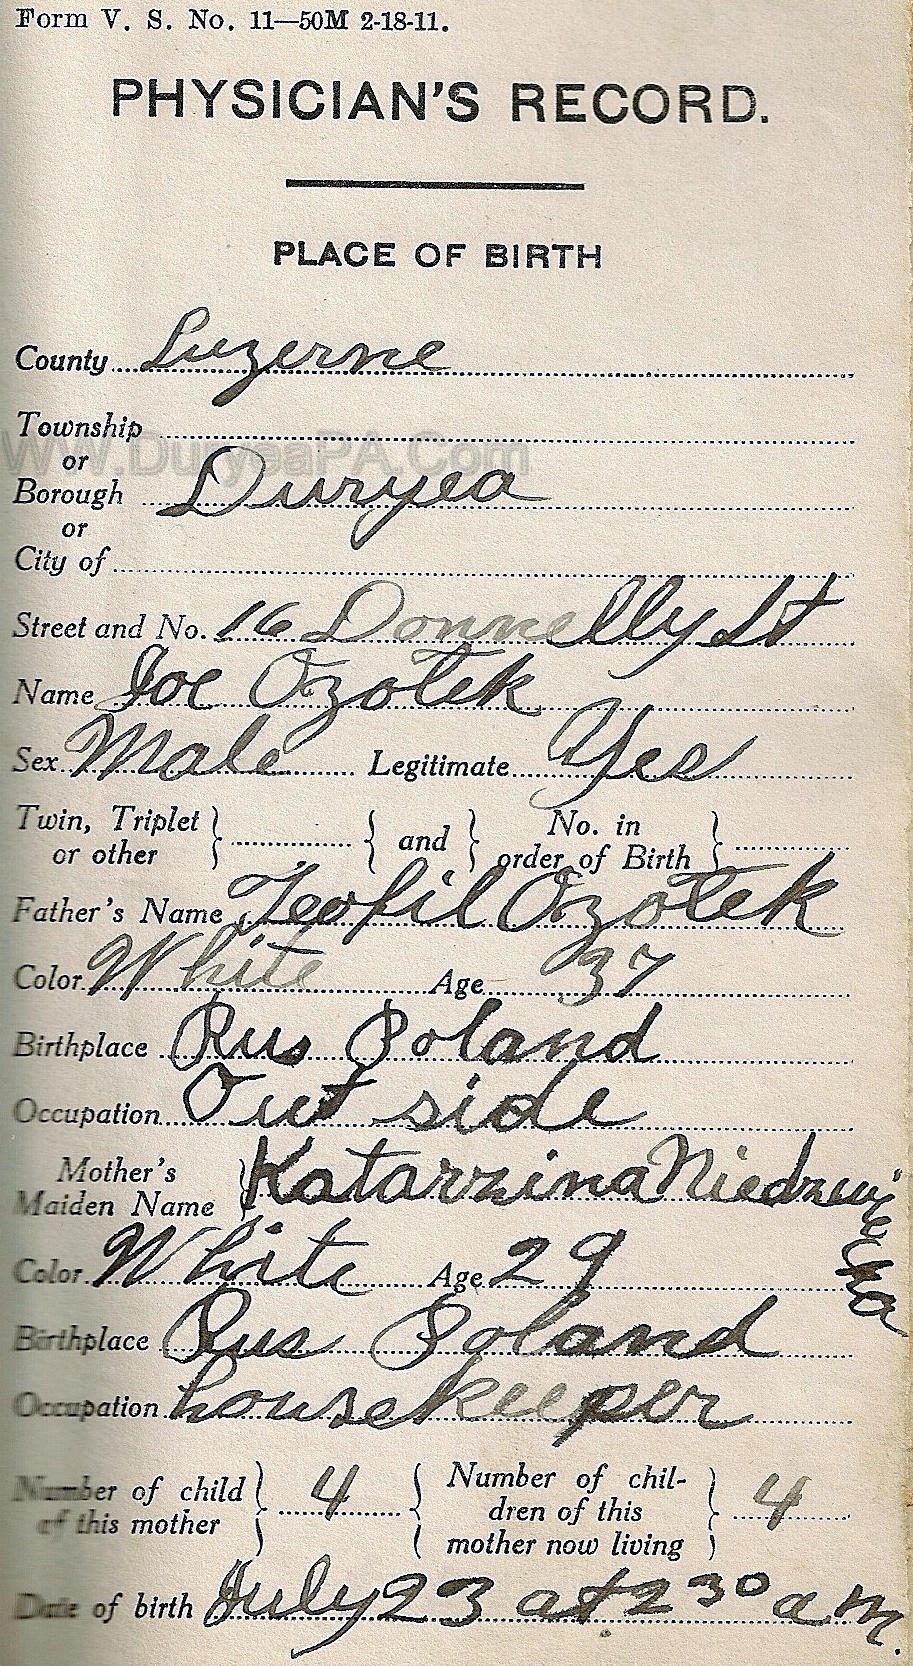 Form V. S. No. 11—50M 2-18-11.
PHYSICIAN'S RECORD.
PLACE OF BIRTH
County Luzerne
Township
WW.DuryeaPA.Com
or
Borough Duryea
or
City of
Street and No. 16 Donnelly St
Name Joe Ozotek
Sex Male Legitimate Yes
Twin, Triplet } { and } No. in }
or other order of Birth
Father's Name Teofil Ozotek
Color White Age 37
Birthplace Rus Poland
Occupation Out side
Mother's
Maiden Name } Katarzina Niedzwiecka
Color White Age 29
Birthplace Rus Poland
Occupation housekeeper
Number of child } 4 { Number of chil- } 4
of this mother dren of this
mother now living
Date of birth July 23 at 2 30 a m.